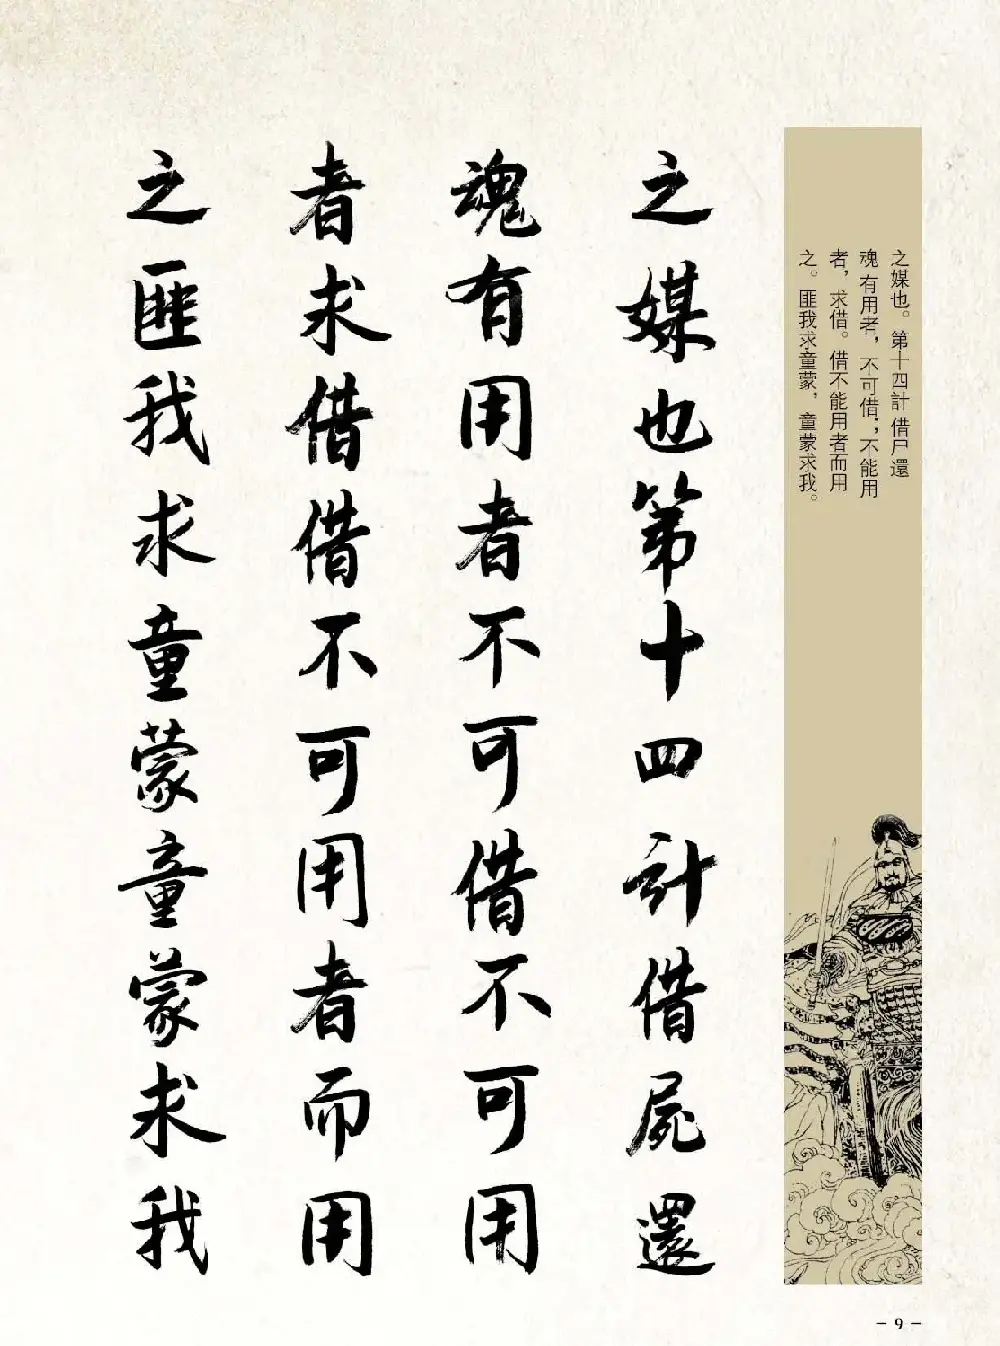 之媒也。第十四計 借尸還
魂 有用者，不可借；不能用
者，求借。借不能用者而用
之。匪我求童蒙，童蒙求我。
之媒也第十四計借屍還
魂有用者不可借不可用
者求借借不可用者而用
之匪我求童蒙童蒙求我
- 9 -